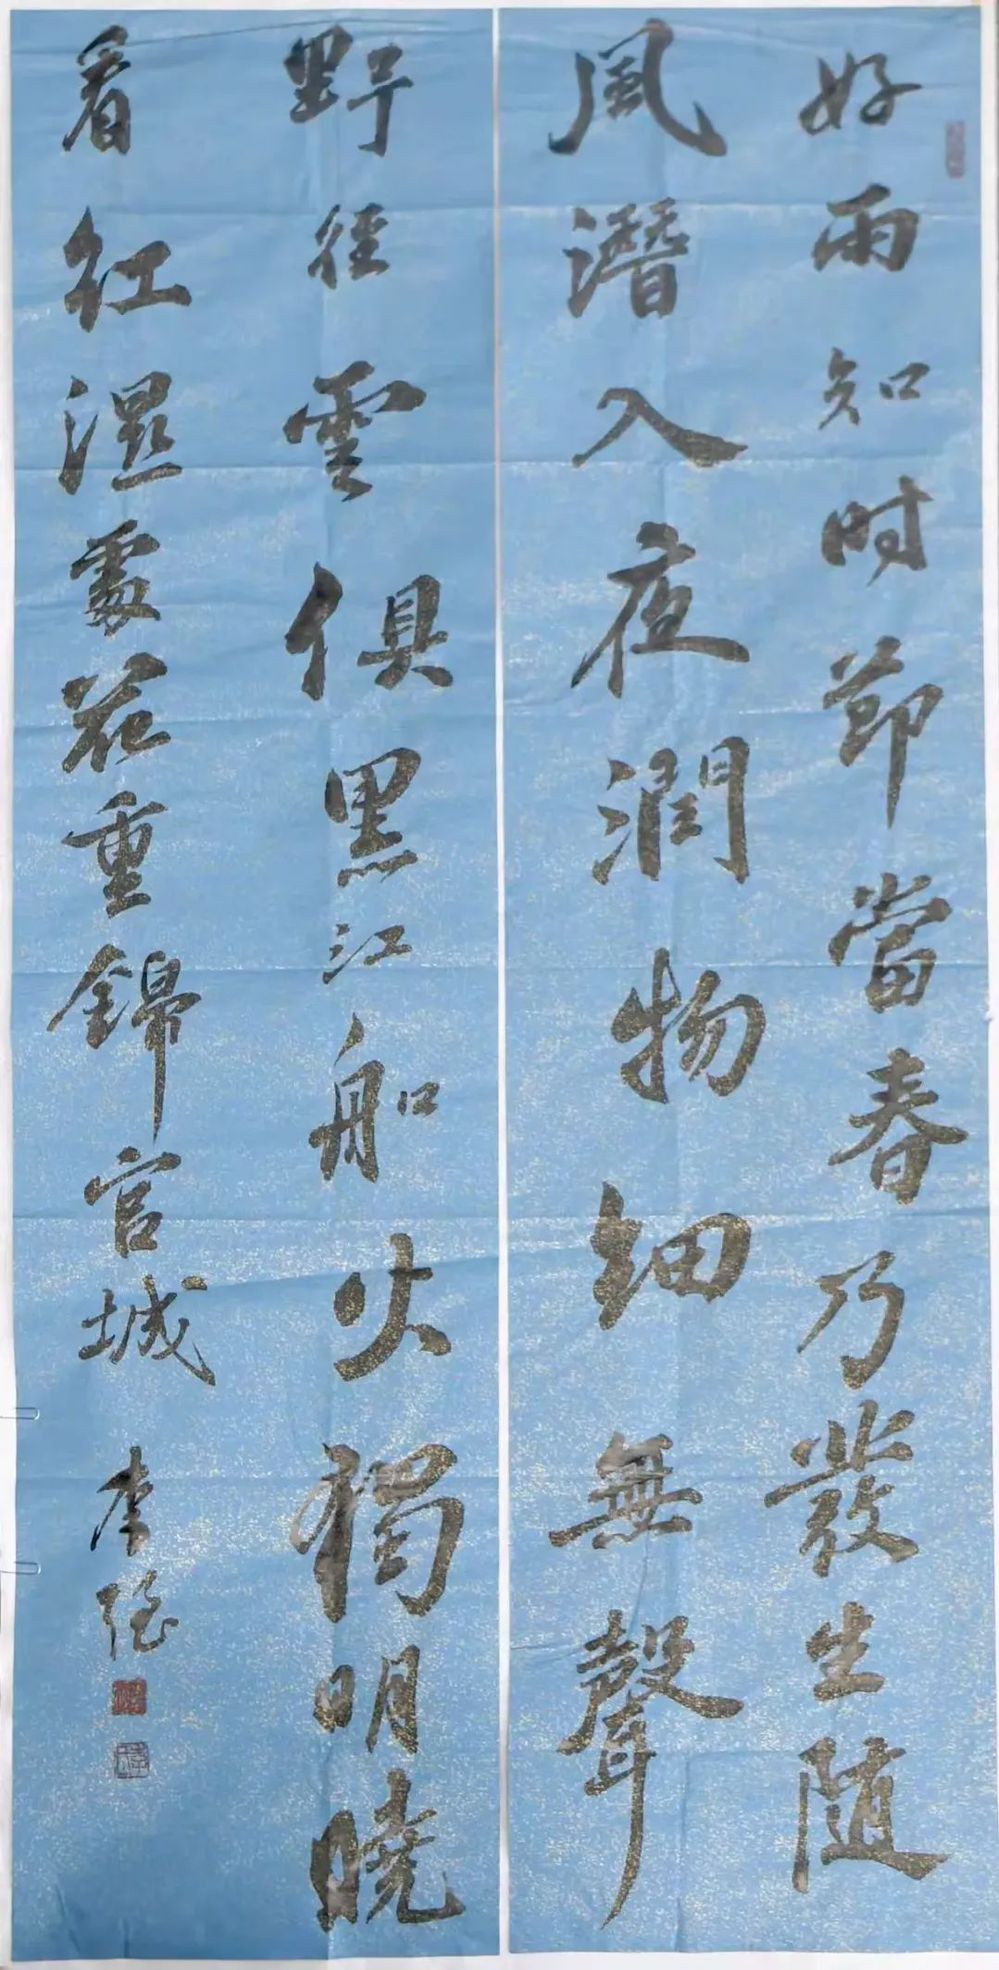 好雨知时节當春乃發生随
風潛入夜潤物細無聲
野徑雲俱黑江船火獨明曉
看紅濕處花重錦官城
李